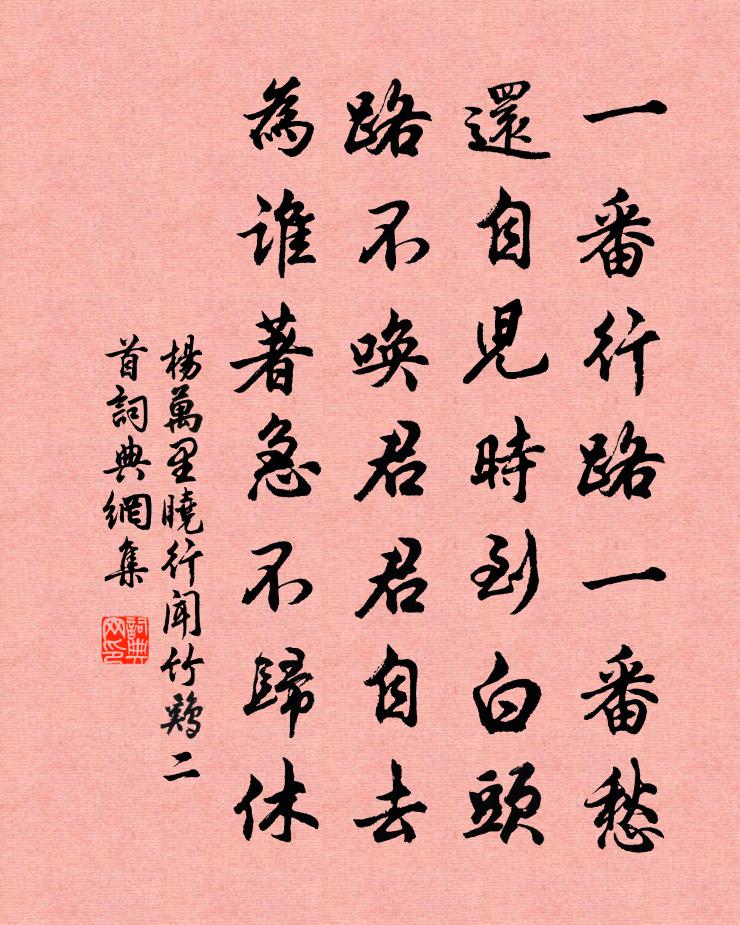 一番行路一番愁
還自兒時到白頭
路不喚君君自去
為誰著急不歸休
楊萬里曉行聞竹鷄二
首詞典網集
詞典
网印